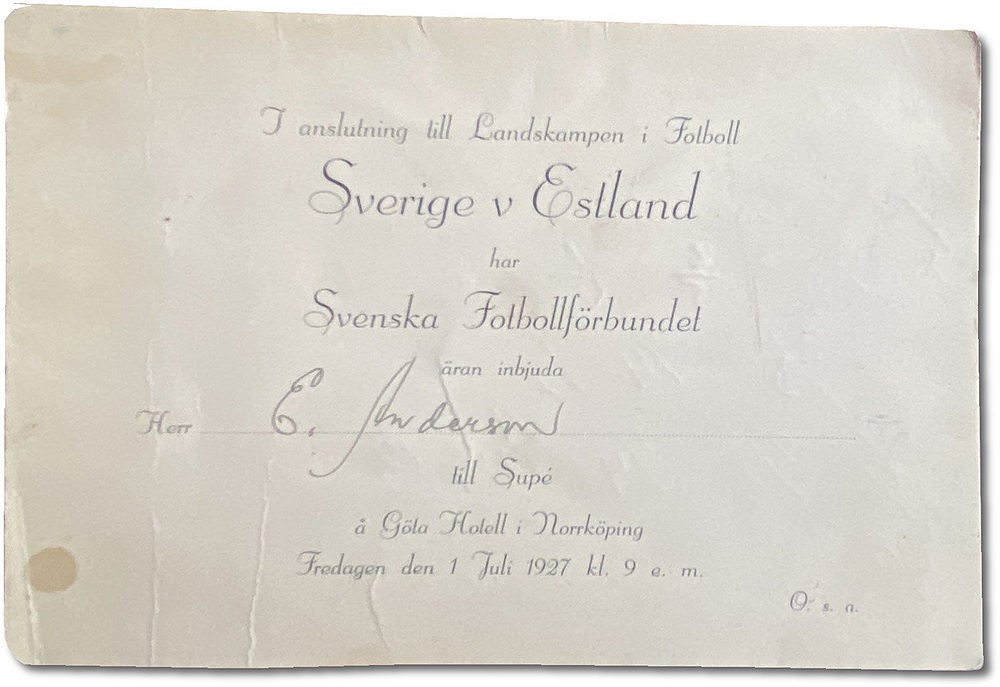 I anslutning till Landskampen i Fotboll
Sverige v Estland
har
Svenska Fotbollförbundet
äran inbjuda
Herr E. Anderson
till Supé
å Göta Hotell i Norrköping
Fredagen den 1 Juli 1927 kl. 9 e. m.
O. s. a.